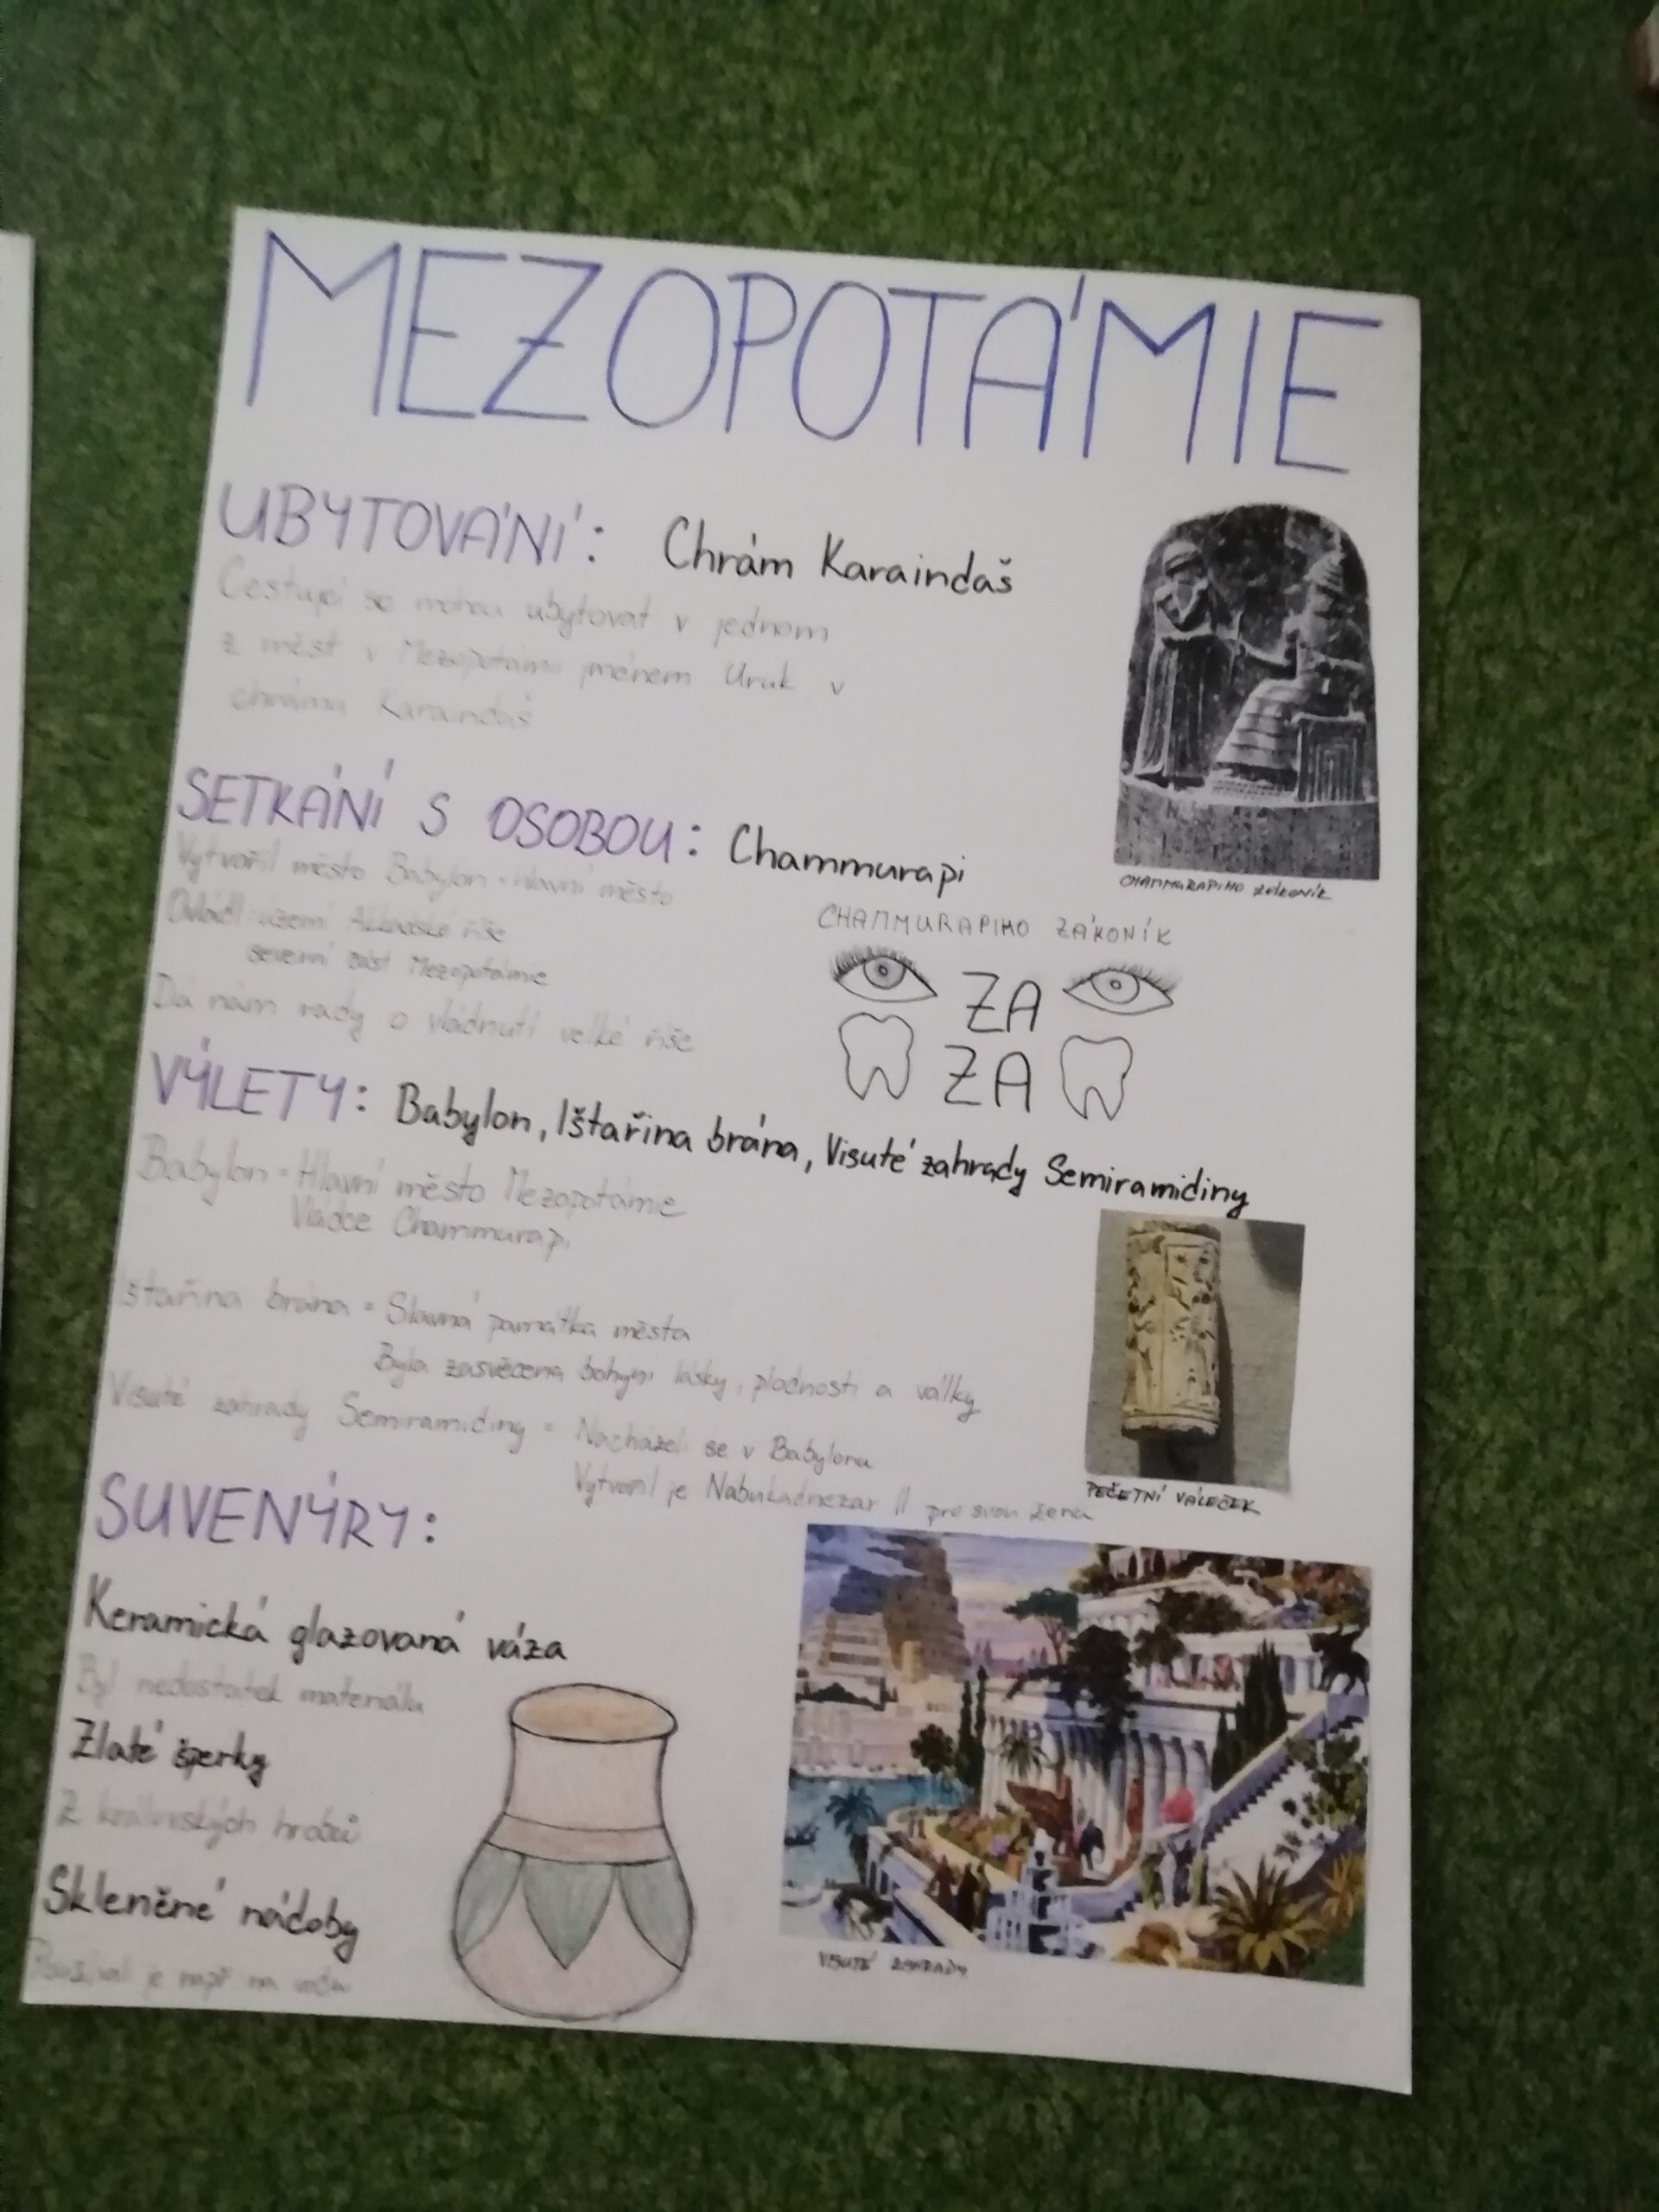 MEZOPOTÁMIE
UBYTOVÁNÍ: Chrám Karaindaš
Cestující se mohou ubytovat v jednom
z měst v Mezopotámii jménem Uruk v
chrámu Karaindaš
CHAMMURAPIHO ZÁKONÍK
SETKÁNÍ S OSOBOU: Chammurapi
Vytvořil město Babylon - hlavní město
Ovládl: území Akkadské říše
severní část Mezopotámie
Dá nám rady o vládnutí velké říše
CHAMMURAPIHO ZÁKONÍK
ZA
ZA
VÝLETY: Babylon, Ištařina brána, Visuté zahrady Semiramidiny
Babylon = Hlavní město Mezopotámie
Vládce Chammurapi
štařina brána = Slavná památka města
Byla zasvěcena bohyni lásky, plodnosti a války
Visuté zahrady Semiramidiny = Nacházeli se v Babylonu
Vytvořil je Nabukadnezar II pro svou ženu
PEČETNÍ VÁLEČEK
SUVENÝRY:
Keramická glazovaná váza
Byl nedostatek materiálu
Zlaté šperky
Z královských hrobů
Skleněné nádoby
je např na
VISUTÉ ZAHRADY